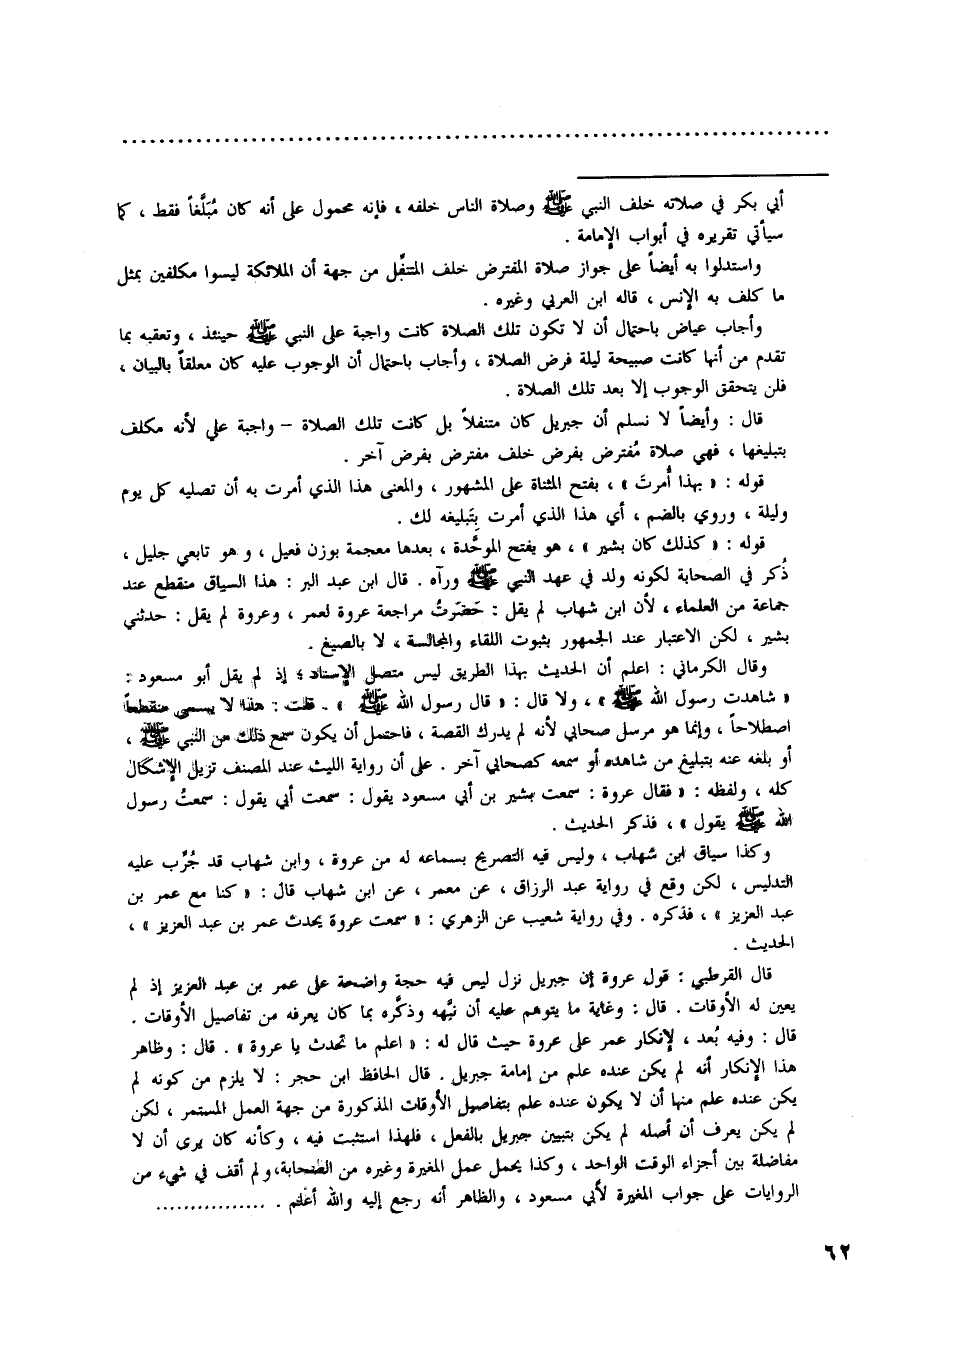 أبي بكر في صلاته خلف النبي ﷺ وصلاة الناس خلفه ، فإنه محمول على أنه كان مُبَلِّغاً فقط ، كما
سيأتي تقريره في أبواب الإمامة .
واستدلوا به أيضاً على جواز صلاة المفترض خلف المتنفِّل من جهة أن الملائكة ليسوا مكلفين بمثل
ما كلف به الإنس ، قاله ابن العربي وغيره .
وأجاب عياض باحتمال أن لا تكون تلك الصلاة كانت واجبة على النبي ﷺ حينئذ ، وتعقبه بما
تقدم من أنها كانت صبيحة ليلة فرض الصلاة ، وأجاب باحتمال أن الوجوب عليه كان معلقاً بالبيان ،
فلن يتحقق الوجوب إلا بعد تلك الصلاة .
قال : وأيضاً لا نسلم أن جبريل كان متنفلاً بل كانت تلك الصلاة – واجبة علي لأنه مكلف
بتبليغها ، فهي صلاة مُفترض بفرض خلف مفترض بفرض آخر .
قوله : « بهذا أُمرتَ » ، بفتح المثناة على المشهور ، والمعنى هذا الذي أمرت به أن تصليه كل يوم
وليلة ، وروي بالضم ، أي هذا الذي أمرت بِتَبليغه لك .
قوله : « كذلك كان بشير » ، هو يفتح الموحَّدة ، بعدها معجمة بوزن فعيل ، و هو تابعي جليل ،
ذُكر في الصحابة لكونه ولد في عهد النبي ﷺ ورآه . قال ابن عبد البر : هذا السياق منقطع عند
جماعة من العلماء ، لأن ابن شهاب لم يقل : حَضرَتُ مراجعة عروة لعمر ، وعروة لم يقل : حدثني
بشير ، لكن الاعتبار عند الجمهور بثبوت اللقاء والمجالسة ، لا بالصيغ .
وقال الكرماني : اعلم أن الحديث بهذا الطريق ليس متصل الإسناد ؛ إذ لم يقل أبو مسعود :
« شاهدت رسول الله ﷺ » ، ولا قال : « قال رسول الله ﷺ » . قلت : هذا لا يسمى منقطعاً
اصطلاحاً ، وإنما هو مرسل صحابي لأنه لم يدرك القصة ، فاحتمل أن يكون سمع ذلك من النبي ﷺ ،
أو بلغه عنه بتبليغ من شاهده أو سمعه كصحابي آخر . على أن رواية الليث عند المصنف تزيل الإشكال
كله ، ولفظه : « فقال عروة : سمعت بشير بن أبي مسعود يقول : سمعت أبي يقول : سمعتُ رسول
الله ﷺ يقول » ، فذكر الحديث .
وكذا سياق ابن شهاب ، وليس فيه التصريح بسماعه له من عروة ، وابن شهاب قد جُرِّب عليه
التدليس ، لكن وقع في رواية عبد الرزاق ، عن معمر ، عن ابن شهاب قال : « كنا مع عمر بن
عبد العزيز » ، فذكره . وفي رواية شعيب عن الزهري : « سمعت عروة يحدث عمر بن عبد العزيز » ،
الحديث .
قال القرطبي : قول عروة إن جبريل نزل ليس فيه حجة واضحة على عمر بن عبد العزيز إذ لم
يعين له الأوقات . قال : وغاية ما يتوهم عليه أن نبَّهه وذكَّره بما كان يعرفه من تفاصيل الأوقات .
قال : وفيه بُعد ، لإنكار عمر على عروة حيث قال له : « اعلم ما تحدث يا عروة » . قال : وظاهر
هذا الإنكار أنه لم يكن عنده علم من إمامة جبريل . قال الحافظ ابن حجر : لا يلزم من كونه لم
يكن عنده علم منها أن لا يكون عنده علم بتفاصيل الأوقات المذكورة من جهة العمل المستمر ، لكن
لم يكن يعرف أن أصله لم يكن بتبيين جبريل بالفعل ، فلهذا استثبت فيه ، وكأنه كان يرى أن لا
مفاضلة بين أجزاء الوقت الواحد ، وكذا يحمل عمل المغيرة وغيره من الصحابة، ولم أقف في شيء من
الروايات على جواب المغيرة لأبي مسعود ، والظاهر أنه رجع إليه والله أعلم . ................
٦٢